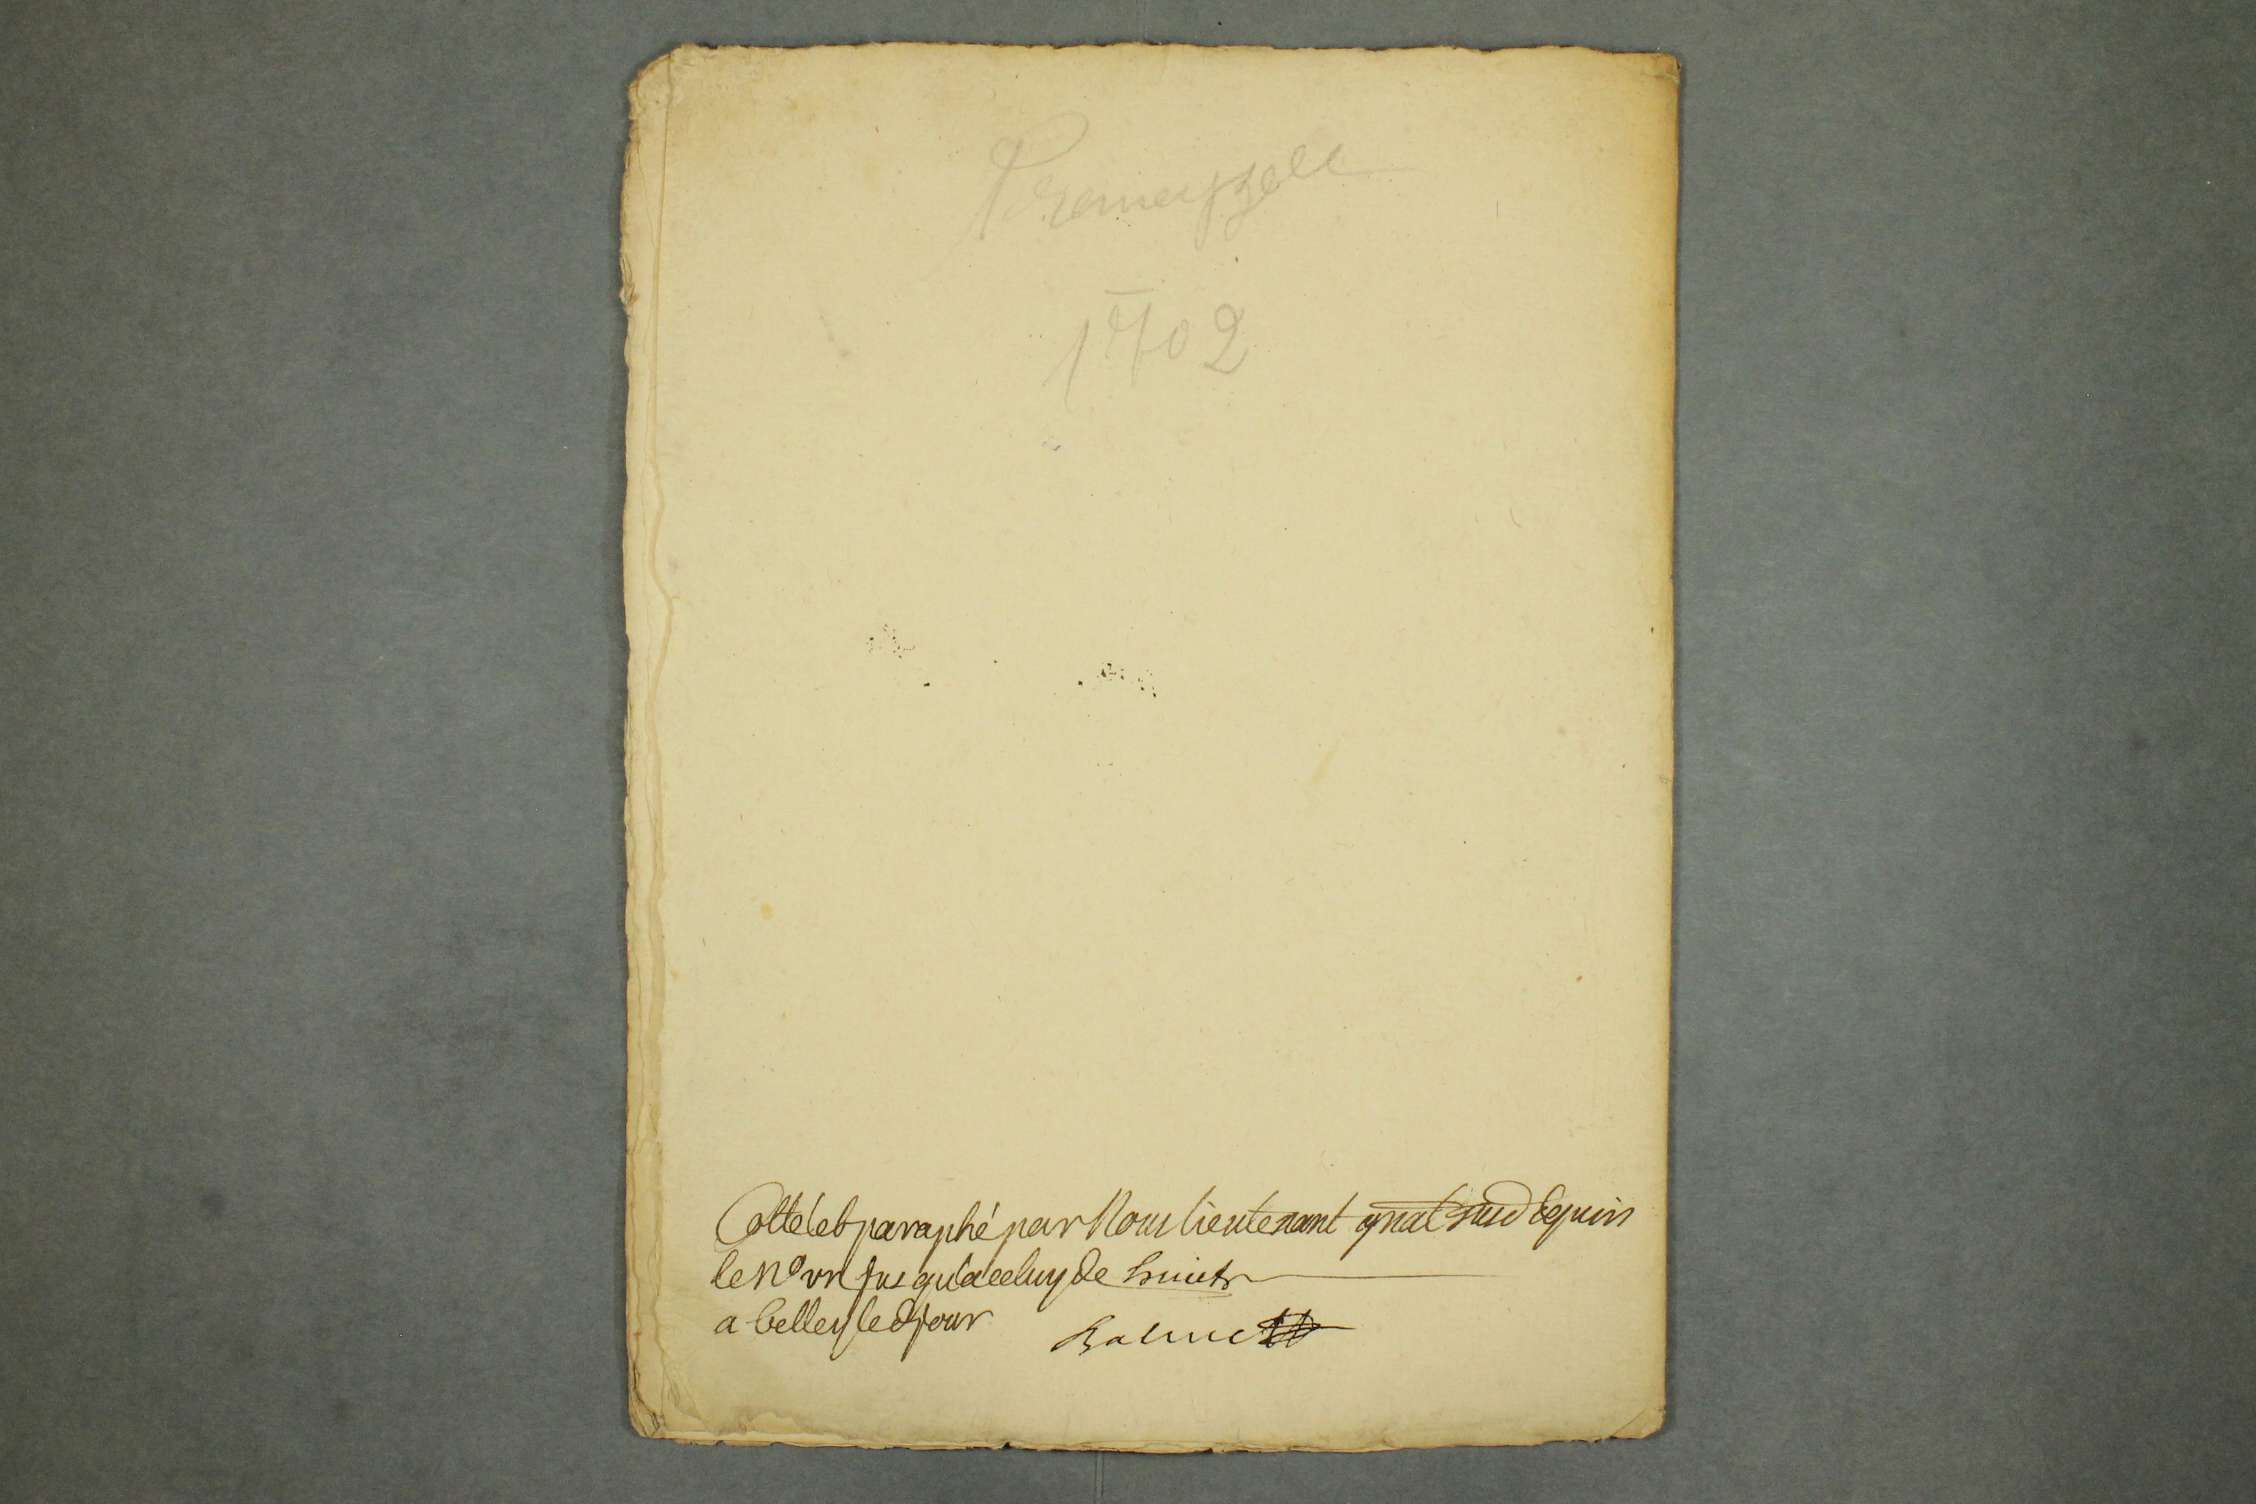 Premeyzel
1702
Cotté et paraphé par Nous lieutenant gnal susd depuis
le No un jusqu'a celuy de huict
a belley led jour
Balme